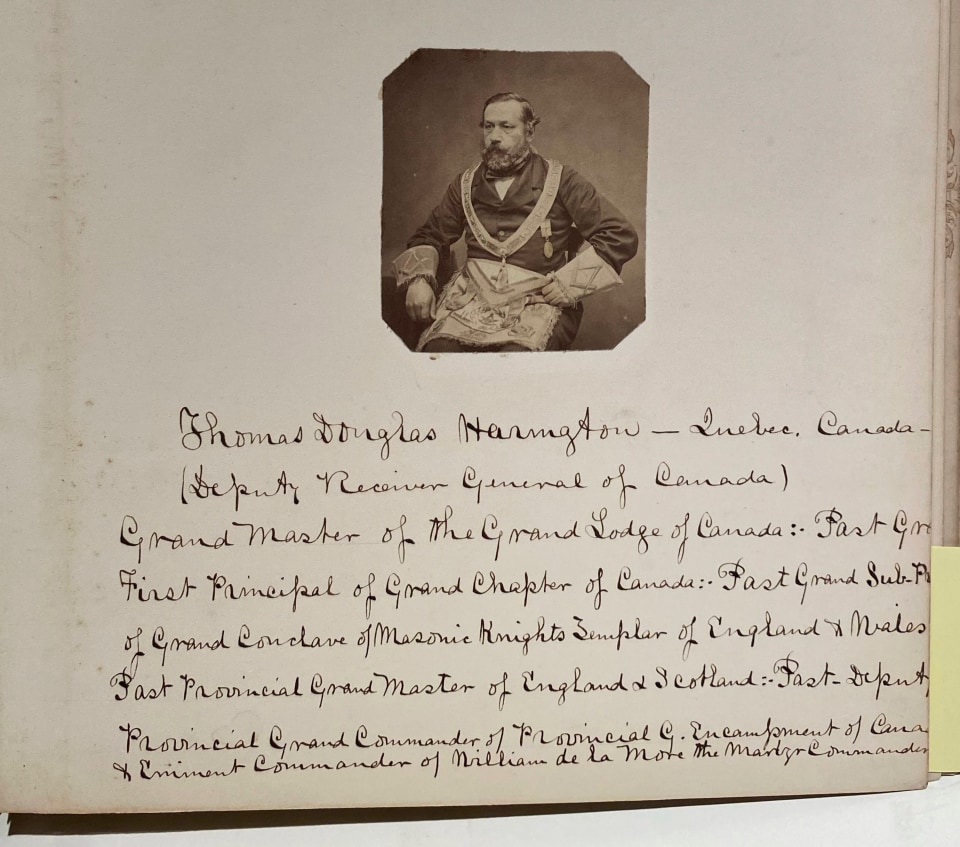 Thomas Douglas Harington — Quebec. Canada —
(Deputy Receiver General of Canada)
Grand Master of the Grand Lodge of Canada:- Past
First Principal of Grand Chapter of Canada:- Past Grand
of Grand Conclave of Masonic Knights Templar of England & Wales
Past Provincial Grand Master of England & Scotland:- Past-
Provincial Grand Commander of Provincial G. Encampment of
& Eminent Commander of William de la More the Martyr